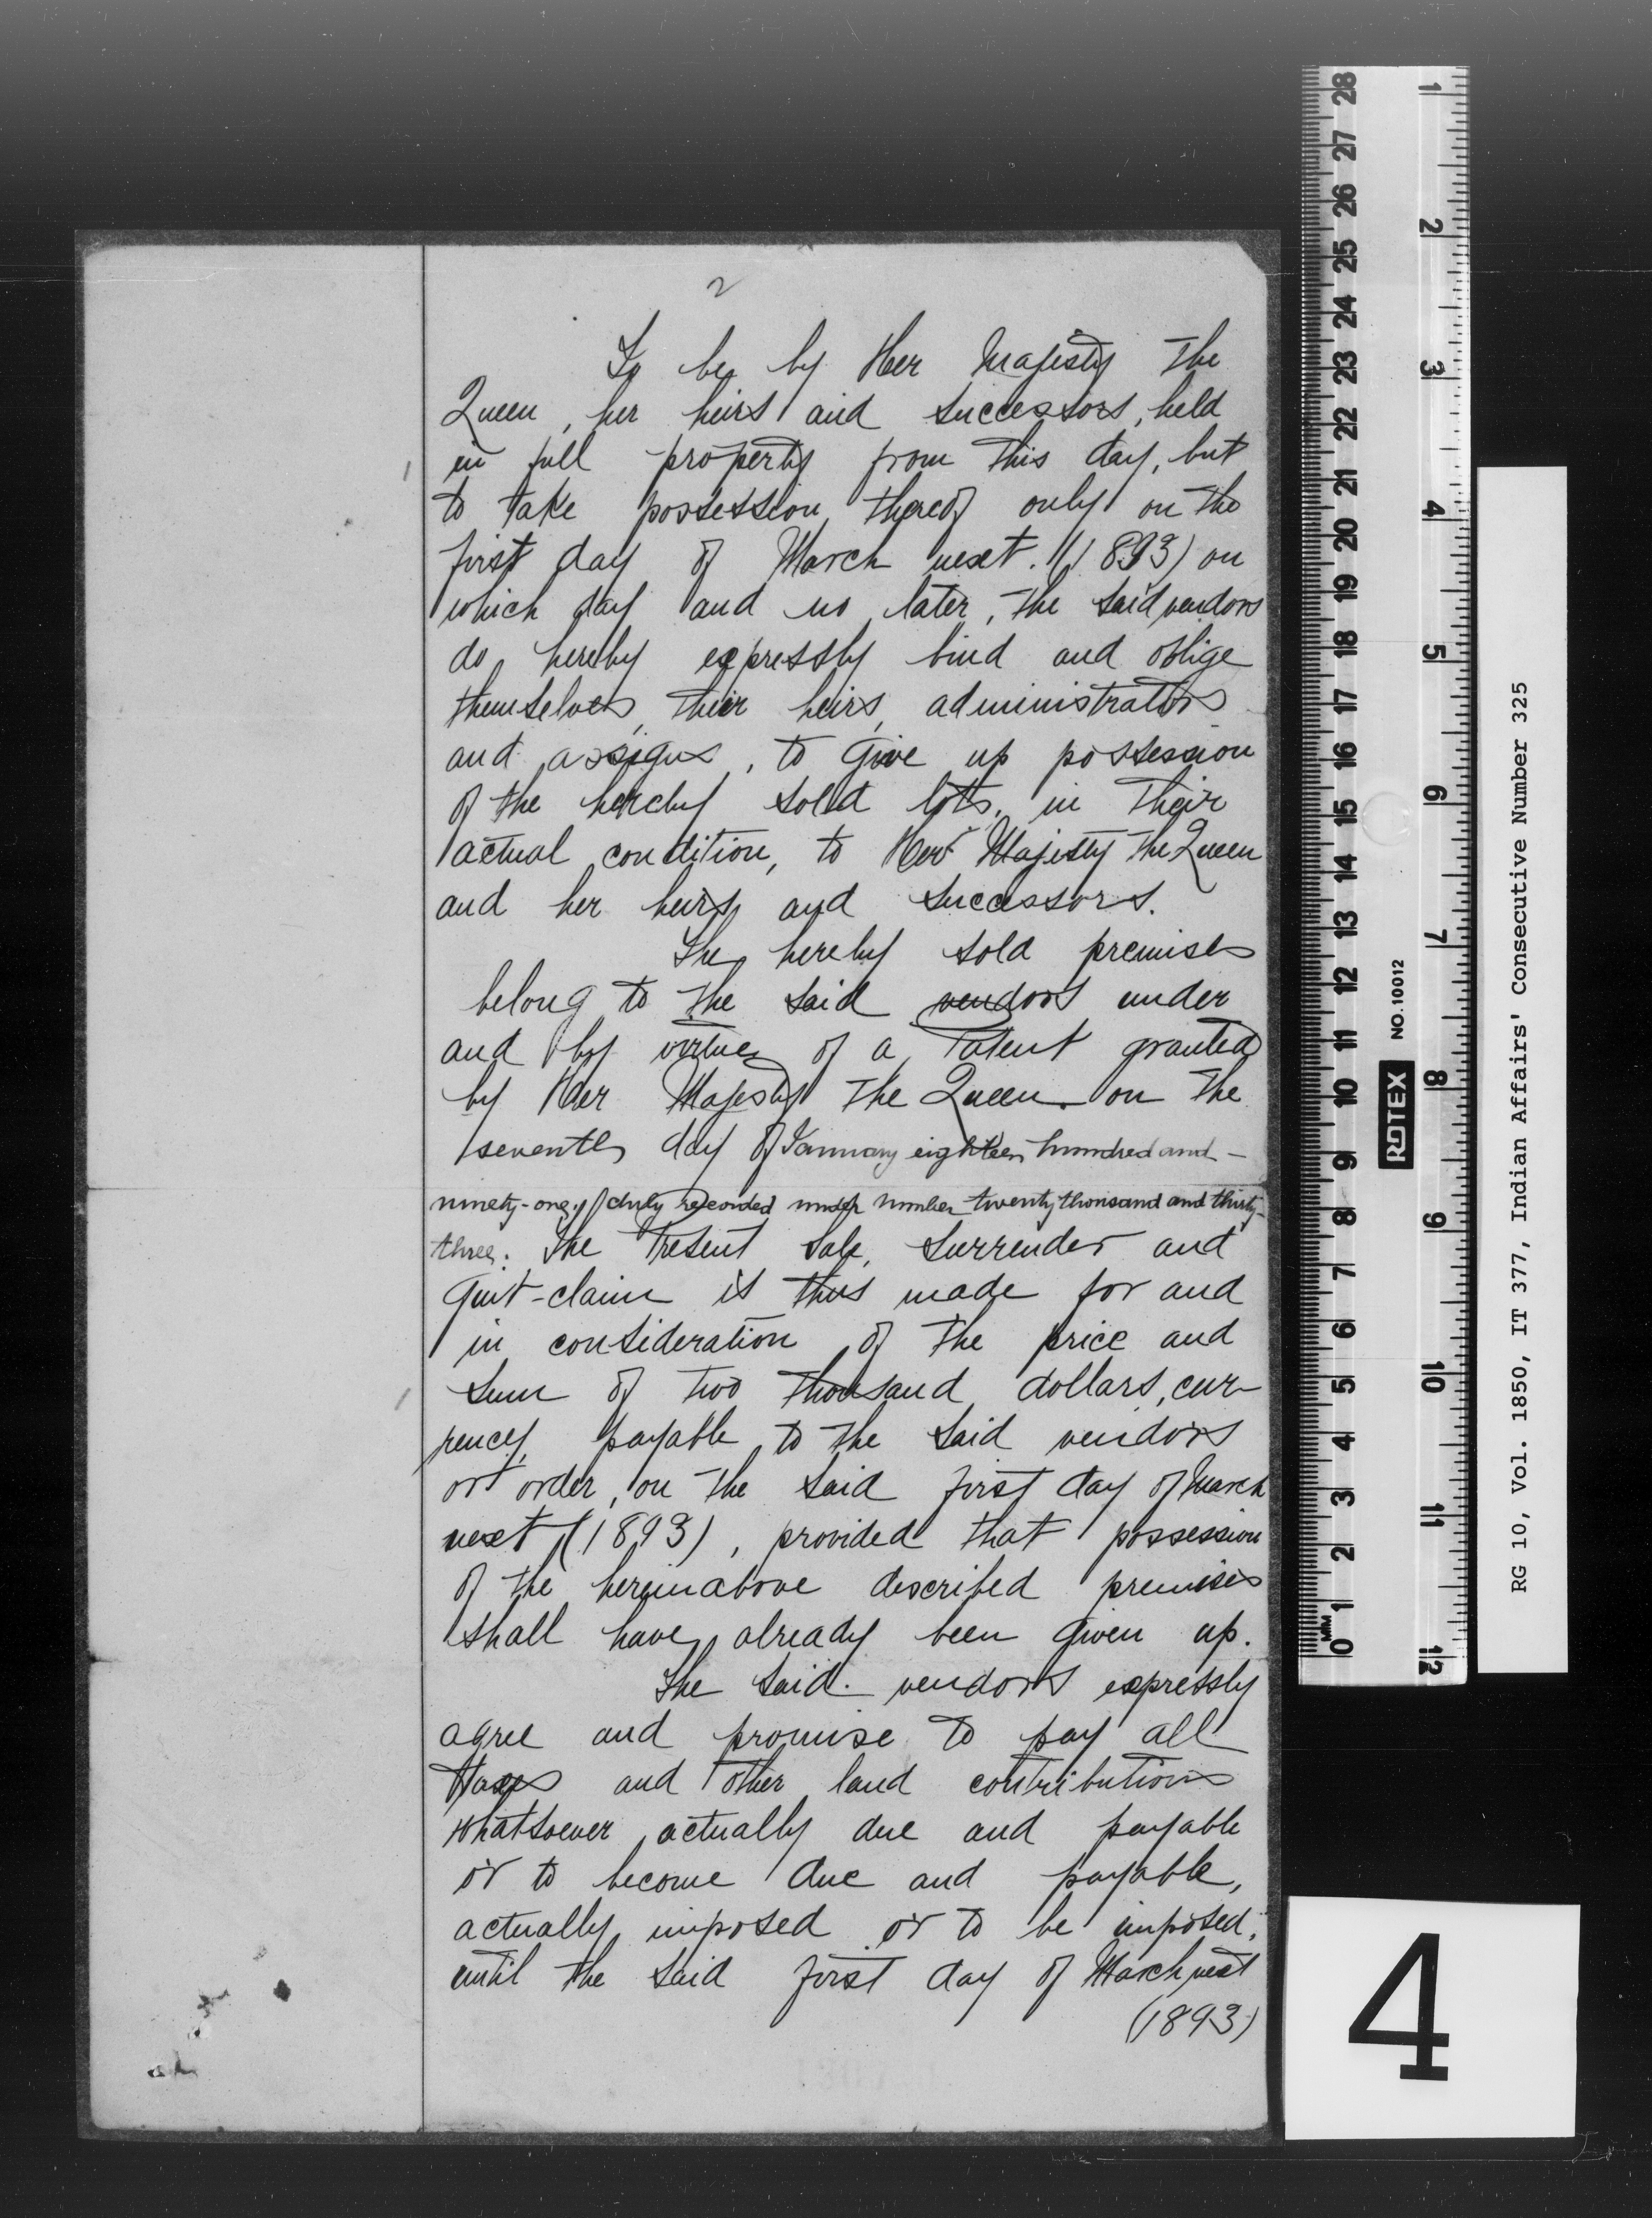 2
To be by Her Majesty The
Queen, her heirs and successors, held
in full property from this day, but
to take possession thereof only on the
first day of March next. (1893) on
which day and no later, the said vendors
do hereby expressly bind and oblige
themselves, their heirs, administrators
and assigns, to give up possession
of the hereby sold lots, in their
actual condition, to Her Majesty The Queen
and her heirs and successors.
The hereby sold premises
belong to the said vendors under
and by virtue of a Patent granted
by Her Majesty The Queen on the
seventh day of January eighteen hundred and -
ninety-one, duly recorded under number twenty thousand and thirty-
three. The Present Sale, Surrender and
Quit-claim is thus made for and
in consideration of the price and
sum of two thousand dollars, cur-
rency, payable to the said vendors
or order, on the said first day of March
next (1893), provided that possession
of the hereinabove described premises
shall have already been given up.
The said vendors expressly
agree and promise to pay all
taxes and other land contributions
whatsoever actually due and payable
or to become due and payable,
actually imposed or to be imposed,
until the said first day of March next
(1893)
28 27 26 25 24 23 22 21 20 19 18 17 16 15 14 13 12 11 10 9 8 7 6 5 4 3 2 1 0
MM
1 2 3 4 5 6 7 8 9 10 11 12
ROTEX NO. 10012
RG 10, Vol. 1850, IT 377, Indian Affairs' Consecutive Number 325
4